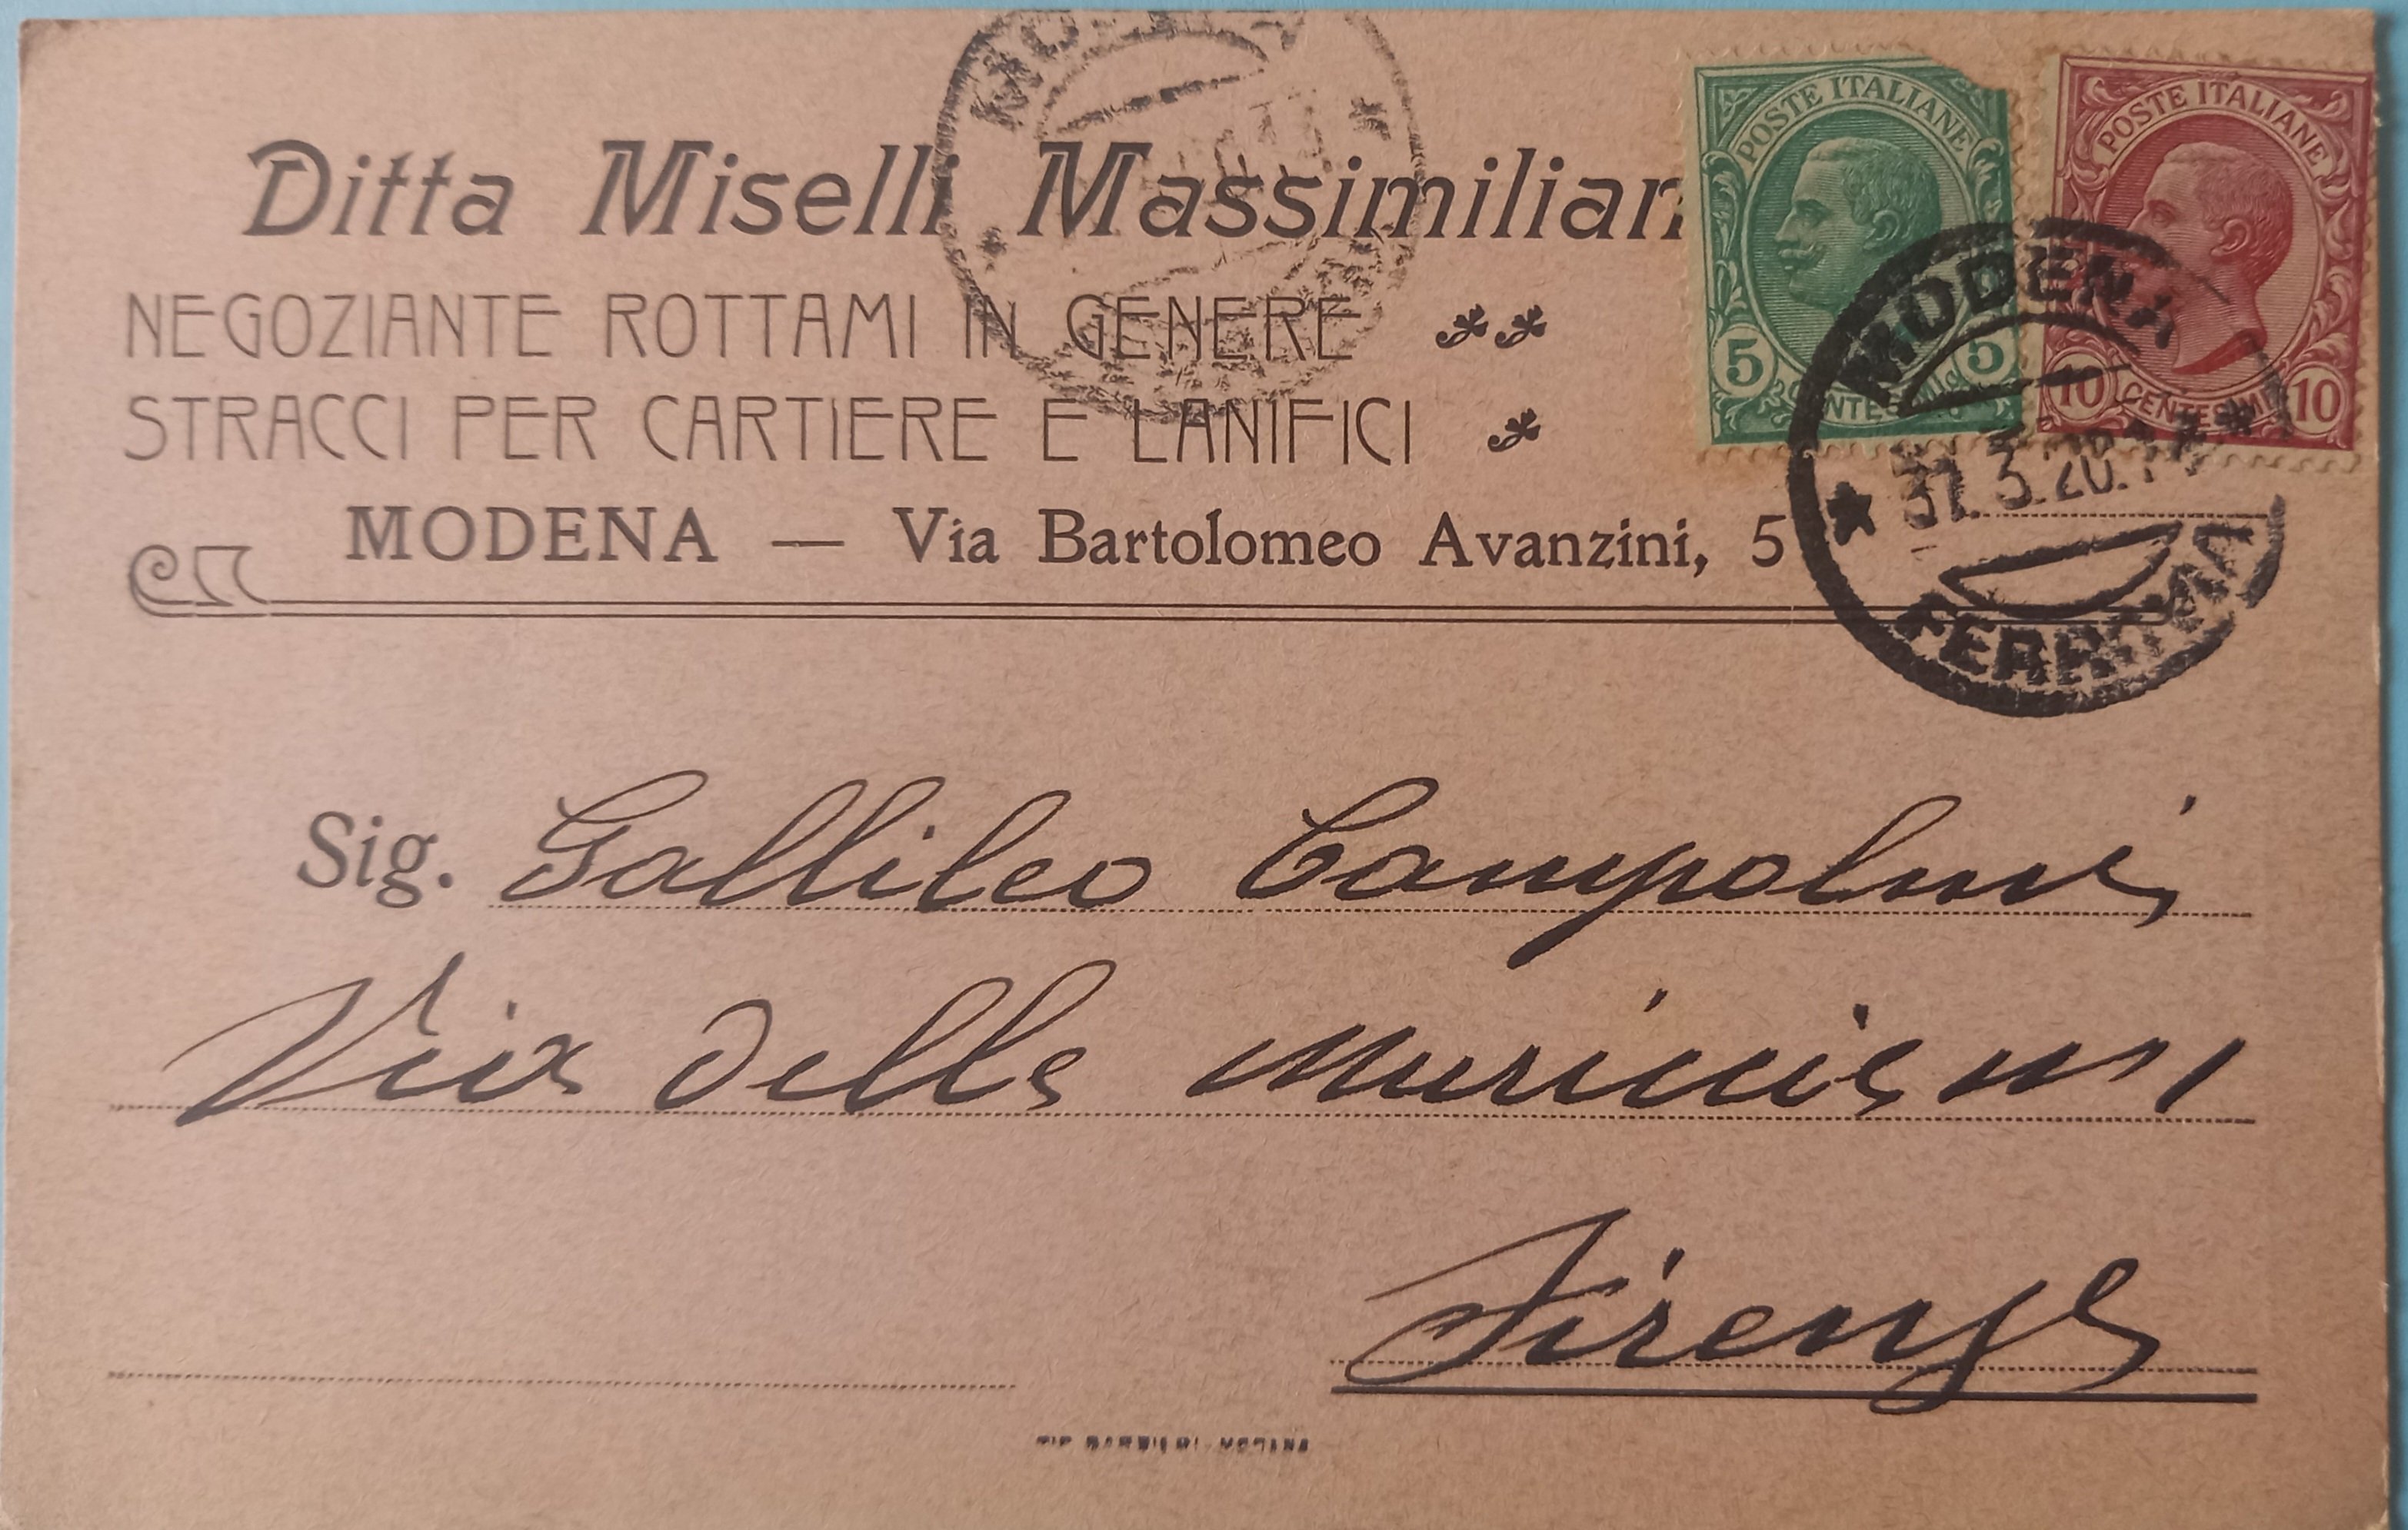 Ditta Miselli Massimilian
NEGOZIANTE ROTTAMI IN GENERE
STRACCI PER CARTIERE E LANIFICI
MODENA — Via Bartolomeo Avanzini, 5
POSTE ITALIANE
5 CENTESIMI 5
POSTE ITALIANE
10 CENTESIMI 10
MODENA
31.3.20.
FERROVIA
Sig. Gallileo Campolmi
Via delle
Firenze